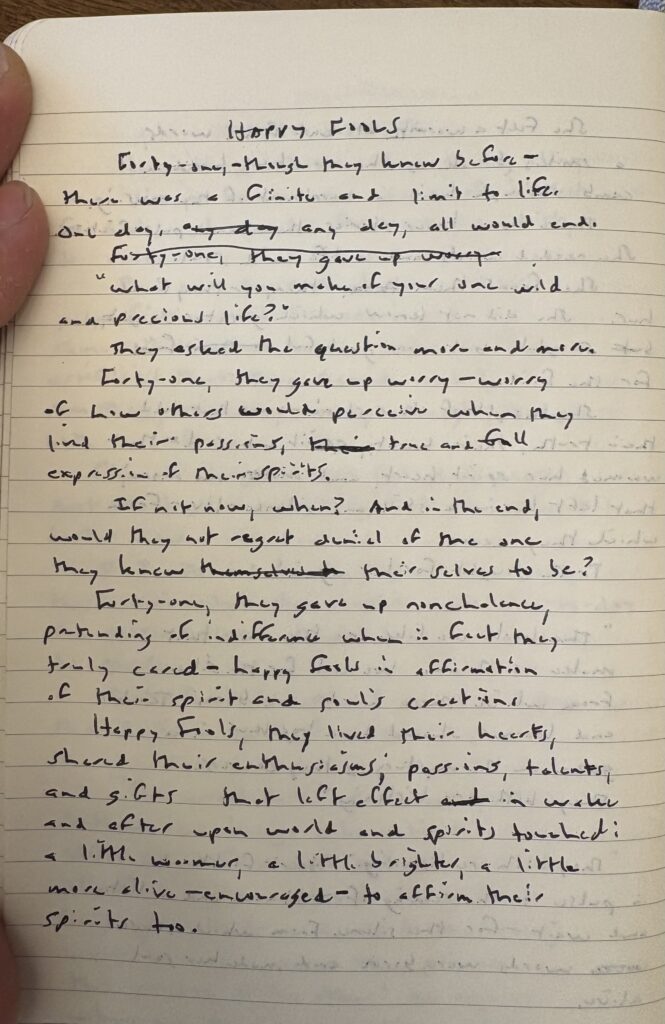 HAPPY FOOLS
Forty-one, -though they knew before-
there was a finite and limit to life.
One day, any day any day, all would end.
Forty-one, they gave up worry
"What will you make of your one wild
and precious life?"
They asked the question more and more.
Forty-one, they gave up worry - worry
of how others would perceive when they
lived their passions, their true and full
expression of their spirits.
If not now, when? And in the end,
would they not regret denial of the one
they knew themselves to their selves to be?
Forty-one, they gave up noncholence,
pretending of indifference when in fact they
truly cared - happy fools in affirmation
of their spirit and soul's creations
Happy Fools, they lived their hearts,
shared their enthusiasms, passions, talents,
and gifts that left effect and in wake
and after upon world and spirits touched:
a little warmer, a little brighter, a little
more alive - encouraged - to affirm their
spirits too.